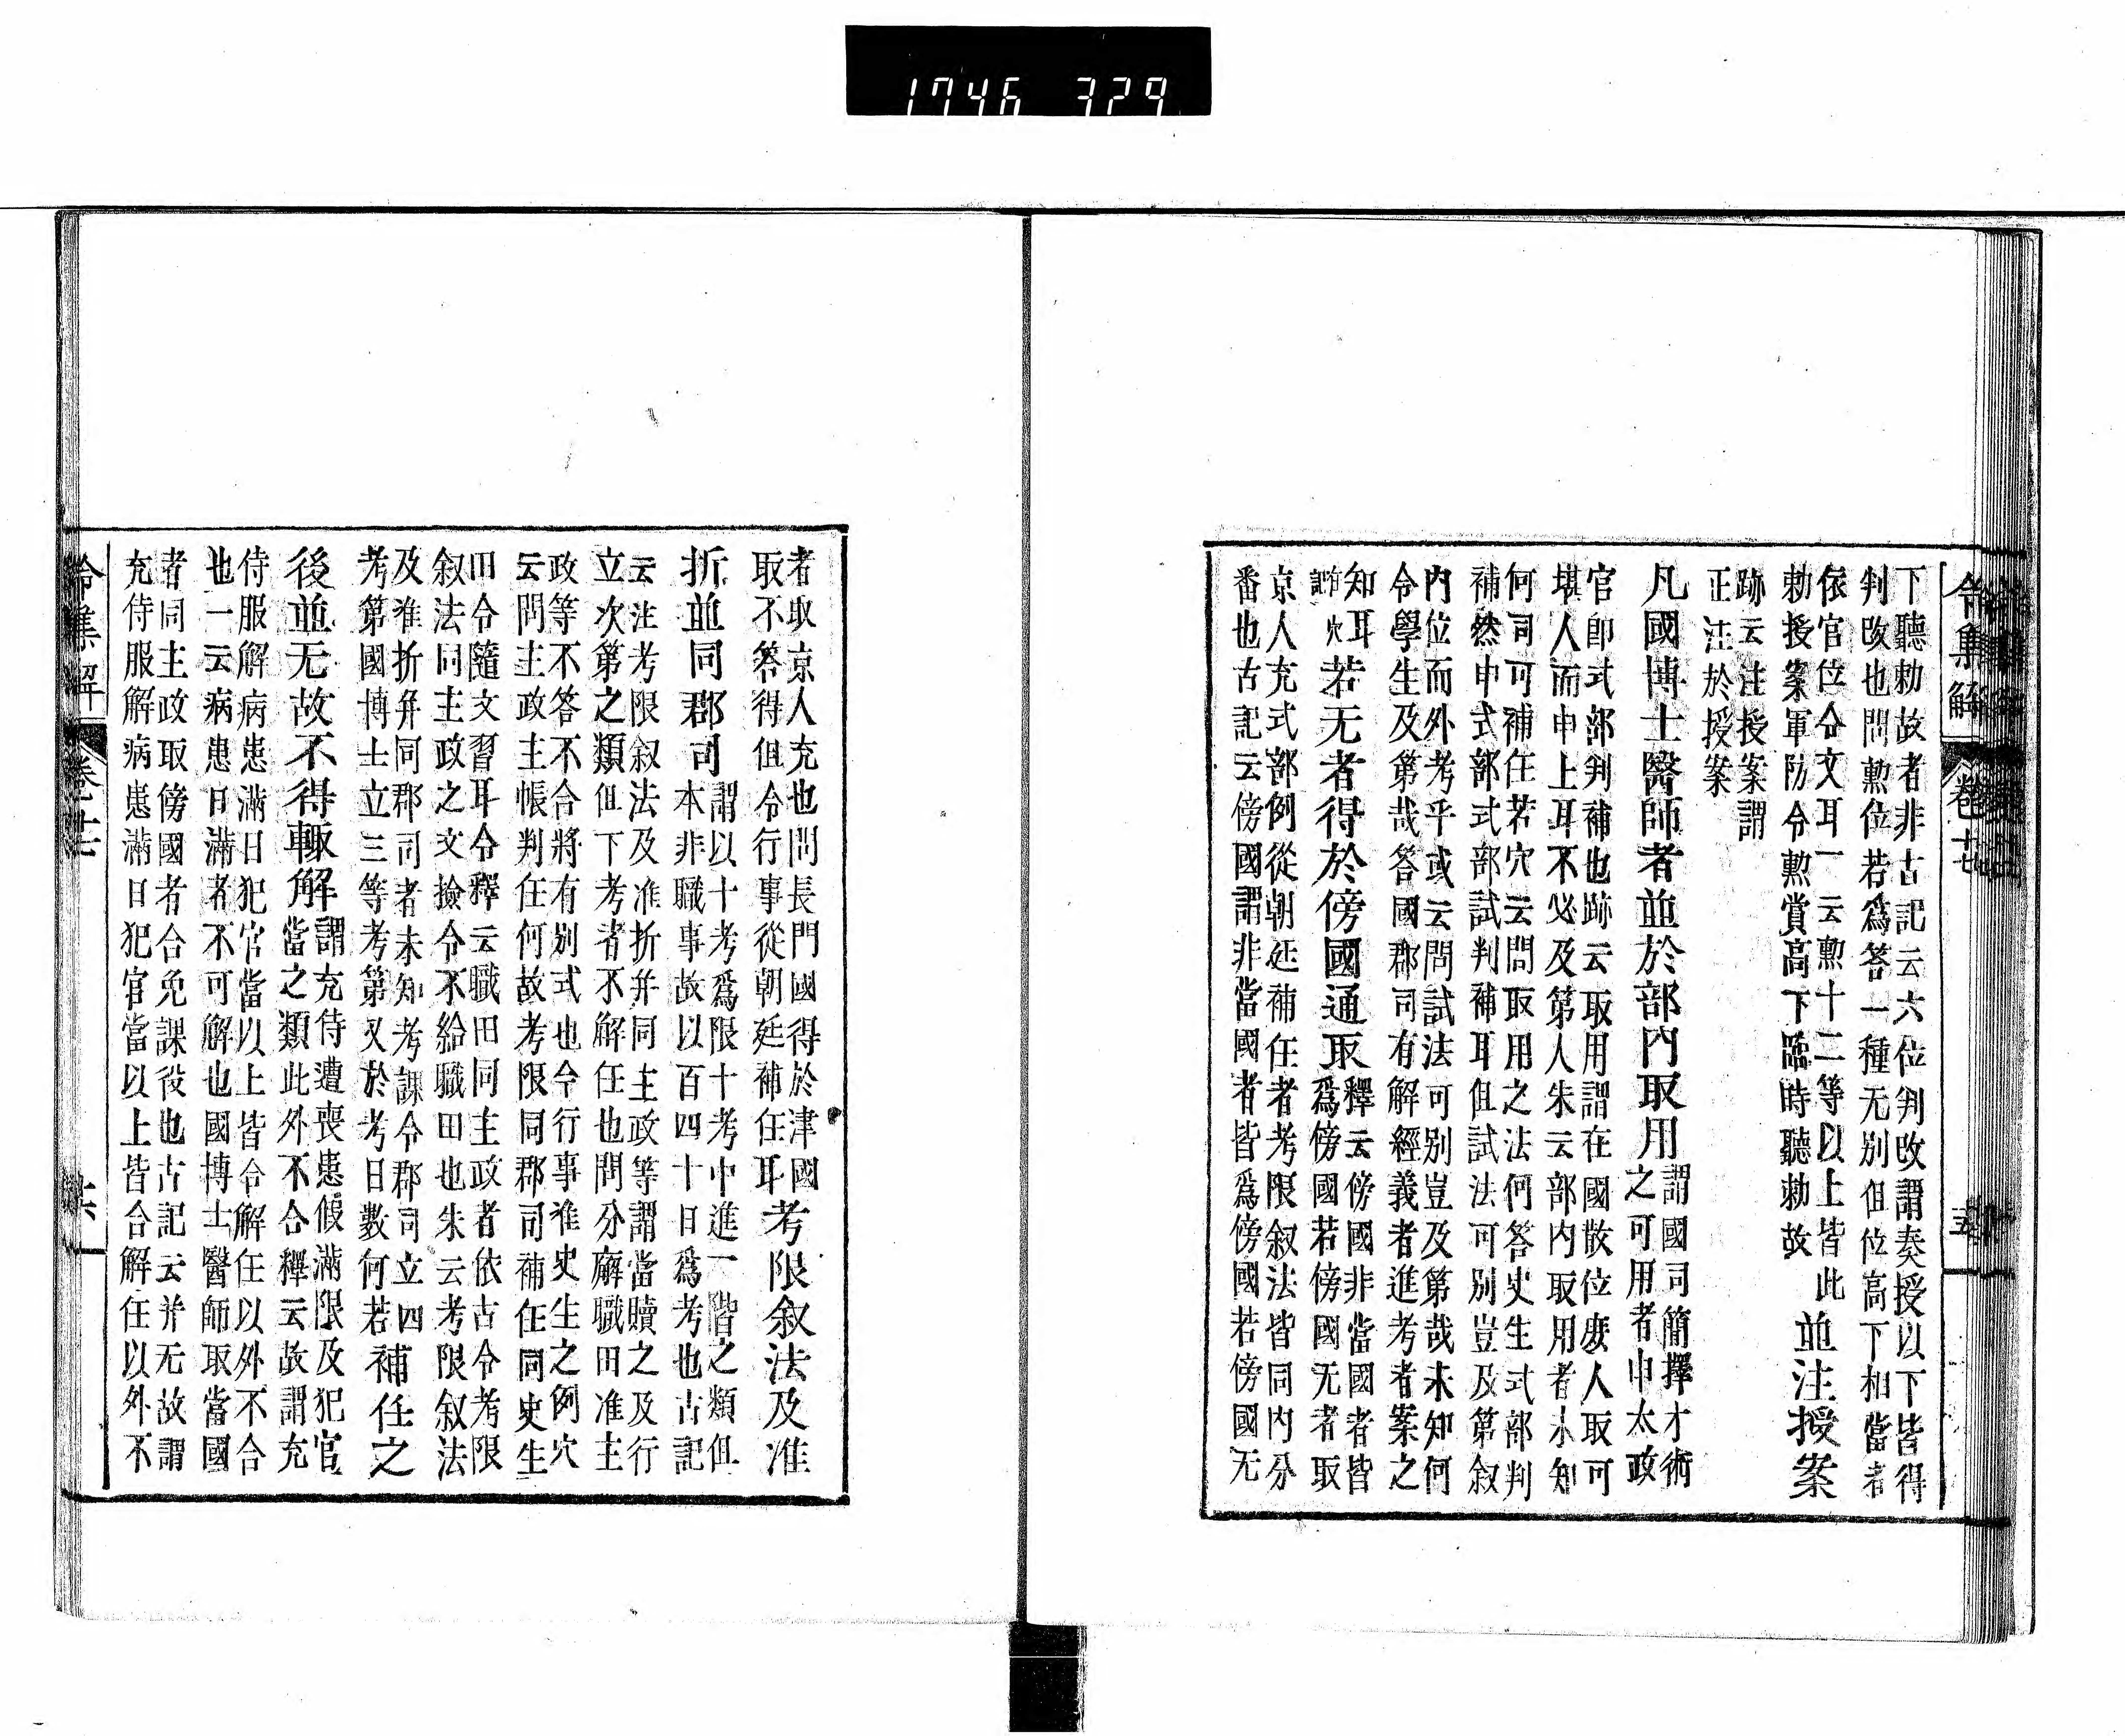 1746 329
令集解 卷十七 五
下聽勅故者非古記云六位判改謂奏授以下皆得
判改也問勲位若爲答一種无別但位高下相當者
依官位令文耳一云勲十二等以上皆此
勅授案軍防令勲賞高下臨時聽勅故
並注授案
跡云注授案謂
正注於授案
凡國博士醫師者並於部内取用
謂國司簡擇才術
之可用者申太政
官即式部判補也跡云取用謂在國散位庶人取可
堪人而申上耳不必及第人朱云部内取用者未知
何司可補任若穴云問取用之法何答史生式部判
補然申式部式部試判補耳但試法可別豈及第叙
内位而外考乎或云問試法可別豈及第哉未知何
令學生及第哉答國郡司有解經義者進考者案之
知耳
若无者得於傍國通取
釋云傍國非當國者皆
爲傍國若傍國无者取
京人充式部例從朝廷補任者考限叙法皆同内分
番也古記云傍國謂非當國者皆爲傍國若傍國无
者取京人充也問長門國得於津國
取不答得但令行事從朝廷補任耳
考限叙法及准
折並同郡司
謂以十考爲限十考中進一階之類但
本非職事故以百四十日爲考也古記
云注考限叙法及准折并同主政等謂當贖之及行
立次第之類但下考者不解任也問分廨職田准主
政等不答不合將有別式也今行事准史生之例穴
云問主政主帳判任何故考限同郡司補任同史生
田令隨文習耳令釋云職田同主政者依古令考限
叙法同主政之文撿令不給職田也朱云考限叙法
及准折并同郡司者未知考課令郡司立四
考第國博士立三等考第又於考日數何若
補任之
後並无故不得輙解
謂充侍遭喪患假滿限及犯官
當之類此外不合釋云故謂充
侍服解病患滿日犯官當以上皆合解任以外不合
也一云病患日滿者不可解也國博士醫師取當國
者同主政取傍國者合免課役也古記云并无故謂
充侍服解病患滿日犯官當以上皆合解任以外不
令集解 卷十七 六